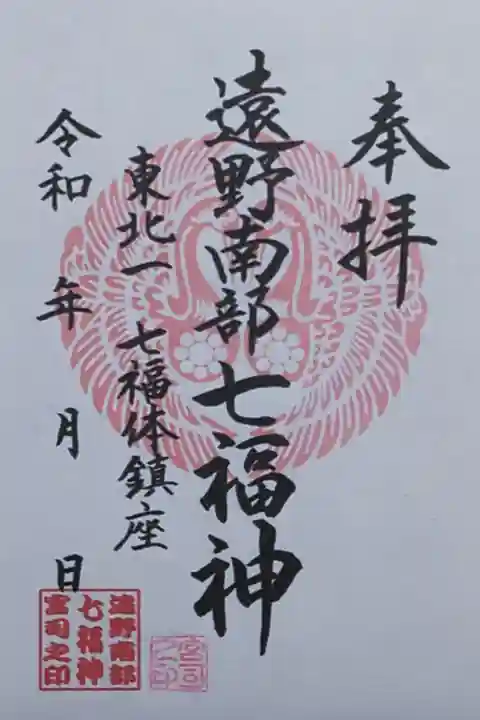 奉拝
遠野南部七福神
東北一 七福体鎮座
令和 年 月 日
遠野南部
七福神
宮司之印
宮司之印